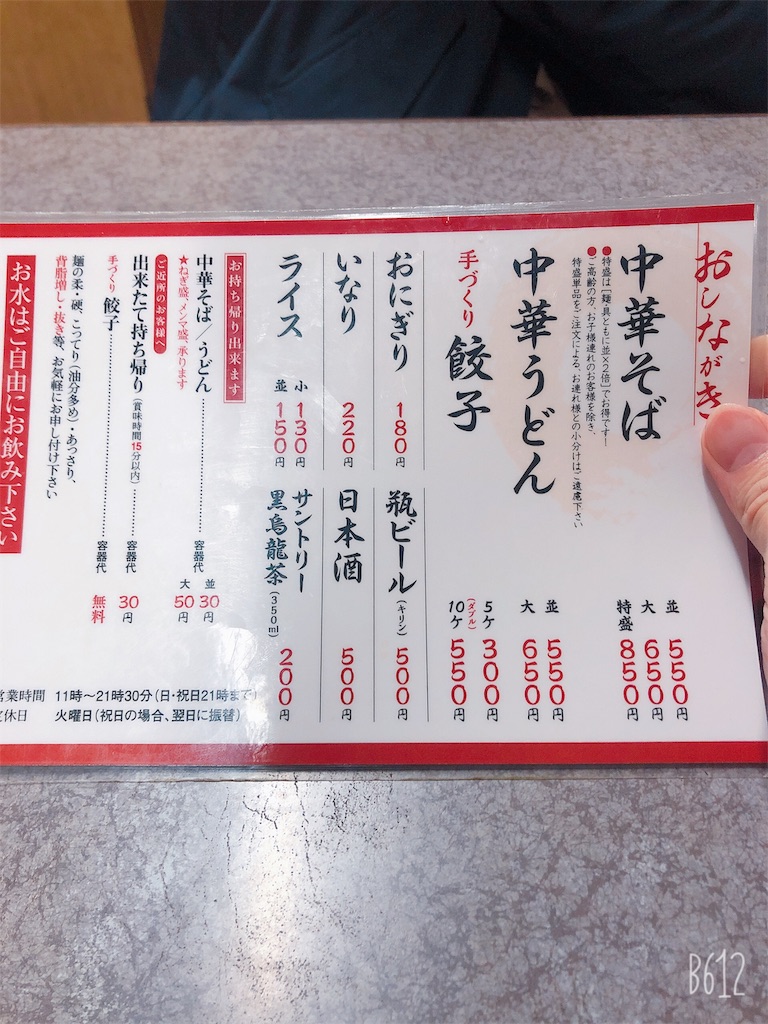 おしながき
中華そば
並 550円
大 650円
特盛 850円
●特盛は[麺・具ともに並×2倍]でお得です!
●ご高齢の方、お子様連れのお客様を除き、
特盛単品をご注文による、お連れ様との小分けはご遠慮下さい
中華うどん
並 550円
大 650円
手づくり 餃子
5ケ 300円
(ダブル)
10ケ 550円
おにぎり 180円
瓶ビール(キリン) 500円
いなり 220円
日本酒 500円
ライス
小 130円
並 150円
サントリー
黒烏龍茶(350ml) 200円
お持ち帰り出来ます
中華そば/うどん 容器代 並 30円
大 50円
★ねぎ盛、メンマ盛、承ります
ご近所のお客様へ
出来たて持ち帰り(賞味時間15分以内) 容器代 30円
手づくり 餃子 容器代 無料
麺の柔、硬、こってり(油分多め)・あっさり、
背脂増し・抜き等、お気軽にお申し付け下さい
お水はご自由にお飲み下さい
営業時間 11時〜21時30分(日・祝日21時まで)
定休日 火曜日(祝日の場合、翌日に振替)
B612